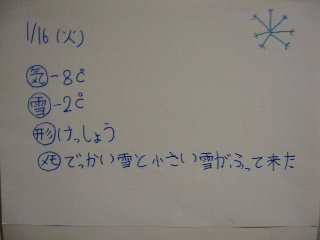 1/16(火)
気-8℃
雪-2℃
形けっしょう
メモでっかい雪と小さい雪がふって来た